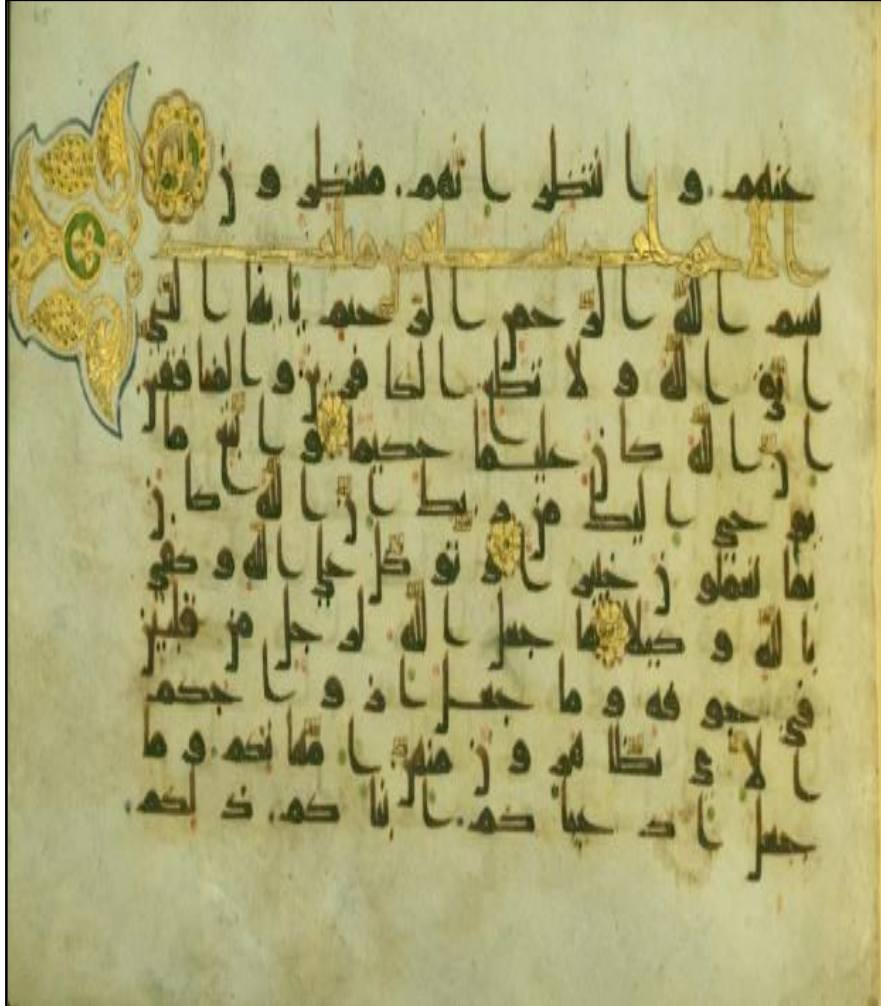 عنهم و انتظر انهم منتظرون
بسم الله الرحمن الرحيم يايها النبي
اتق الله و لا تطع الكافرين و المنافقين
ان الله كان عليما حكيما و اتبع ما
يوحى اليك من ربك ان الله كان
بما تعملون خبيرا و توكل على الله و كفى
بالله و كيلا ما جعل الله لرجل من قلبين
في جوفه و ما جعل ازواجكم
الاى تظاهرون منهن امهاتكم و ما
جعل ادعياكم ابناكم ذلكم